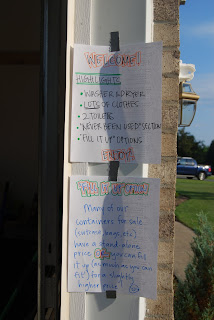 WELCOME!
HIGHLIGHTS
• WASHER & DRYER
• LOTS OF CLOTHES
• 2 TOILETS
• "NEVER BEEN USED" SECTION
• "FILL IT UP" OPTIONS
ENJOY!
Many of our
containers for sale
(suitcase, bags, etc)
have a stand-alone
price or you can fill
it up (as much as you can
fit) for a slightly
higher price!